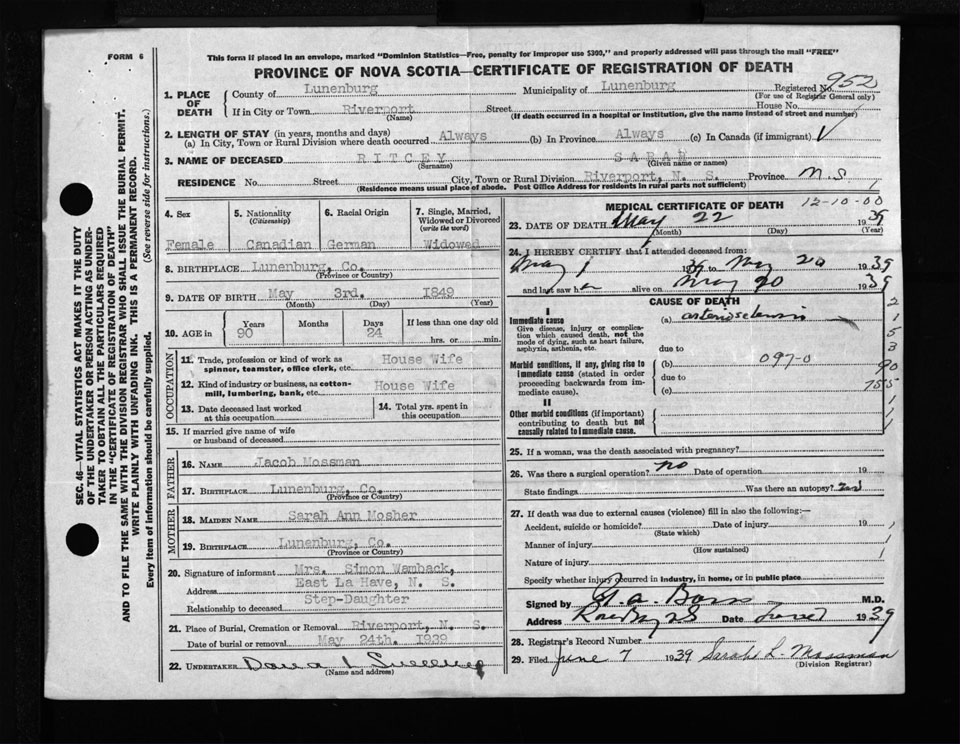 FORM 6
This form if placed in an envelope, marked "Dominion Statistics—Free, penalty for improper use $300," and properly addressed will pass through the mail "FREE"
PROVINCE OF NOVA SCOTIA—CERTIFICATE OF REGISTRATION OF DEATH
SEC. 46—VITAL STATISTICS ACT MAKES IT THE DUTY
OF THE UNDERTAKER OR PERSON ACTING AS UNDER-
TAKER TO OBTAIN ALL THE PARTICULARS REQUIRED
IN THE "CERTIFICATE OF REGISTRATION OF DEATH"
AND TO FILE THE SAME WITH THE DIVISION REGISTRAR WHO SHALL ISSUE THE BURIAL PERMIT.
WRITE PLAINLY WITH UNFADING INK. THIS IS A PERMANENT RECORD.
Every item of information should be carefully supplied. (See reverse side for instructions.)
1. PLACE OF DEATH
County of Lunenburg Municipality of Lunenburg Registered No. 952
(For use of Registrar General only)
If in City or Town Riverport Street House No.
(Name) (If death occurred in a hospital or institution, give the name instead of street and number)
2. LENGTH OF STAY (in years, months and days)
(a) In City, Town or Rural Division where death occurred Always (b) In Province Always (c) In Canada (if immigrant)
3. NAME OF DECEASED RITCEY SARAH
(Surname) (Given name or names)
RESIDENCE No. Street City, Town or Rural Division Riverport, N. S. Province N.S
(Residence means usual place of abode. Post Office Address for residents in rural parts not sufficient)
4. Sex Female
5. Nationality (Citizenship) Canadian
6. Racial Origin German
7. Single, Married, Widowed or Divorced (write the word) Widowed
8. BIRTHPLACE Lunenburg, Co.
(Province or Country)
9. DATE OF BIRTH May 3rd. 1849
(Month) (Day) (Year)
10. AGE in Years 90 Months Days 24 If less than one day old hrs. or min.
OCCUPATION
11. Trade, profession or kind of work as spinner, teamster, office clerk, etc. House Wife
12. Kind of industry or business, as cotton-mill, lumbering, bank, etc. House Wife
13. Date deceased last worked at this occupation
14. Total yrs. spent in this occupation
15. If married give name of wife or husband of deceased
FATHER
16. NAME Jacob Mossman
17. BIRTHPLACE Lunenburg, Co.
(Province or Country)
MOTHER
18. MAIDEN NAME Sarah Ann Mosher
19. BIRTHPLACE Lunenburg, Co.
(Province or Country)
20. Signature of informant Mrs. Simon Wamback,
Address East La Have, N. S.
Relationship to deceased Step-Daughter
21. Place of Burial, Cremation or Removal Riverport, N. S.
Date of burial or removal May 24th. 1939
22. UNDERTAKER
(Name and address)
MEDICAL CERTIFICATE OF DEATH
12-10-00
23. DATE OF DEATH May 22 1939
(Month) (Day) (Year)
24. I HEREBY CERTIFY that I attended deceased from:
May 1 1939 to May 20 1939
and last saw her alive on May 20 1939
CAUSE OF DEATH
I
Immediate cause (a) arteriosclerosis
Give disease, injury or complication which caused death, not the mode of dying, such as heart failure, asphyxia, asthenia, etc.
due to
Morbid conditions, if any, giving rise to immediate cause (stated in order proceeding backwards from immediate cause). (b) 097-0
due to
(c)
II
Other morbid conditions (if important) contributing to death but not causally related to immediate cause.
2
1
5
3
90
755
1
1
1
25. If a woman, was the death associated with pregnancy?
26. Was there a surgical operation? no Date of operation 19
State findings Was there an autopsy?
27. If death was due to external causes (violence) fill in also the following:—
Accident, suicide or homicide? Date of injury 19
(State which)
Manner of injury
(How sustained)
Nature of injury
Specify whether injury occurred in industry, in home, or in public place
Signed by M.D.
Address Date June 1939
28. Registrar's Record Number
29. Filed June 7 1939 Sarah L. Mossman
(Division Registrar)